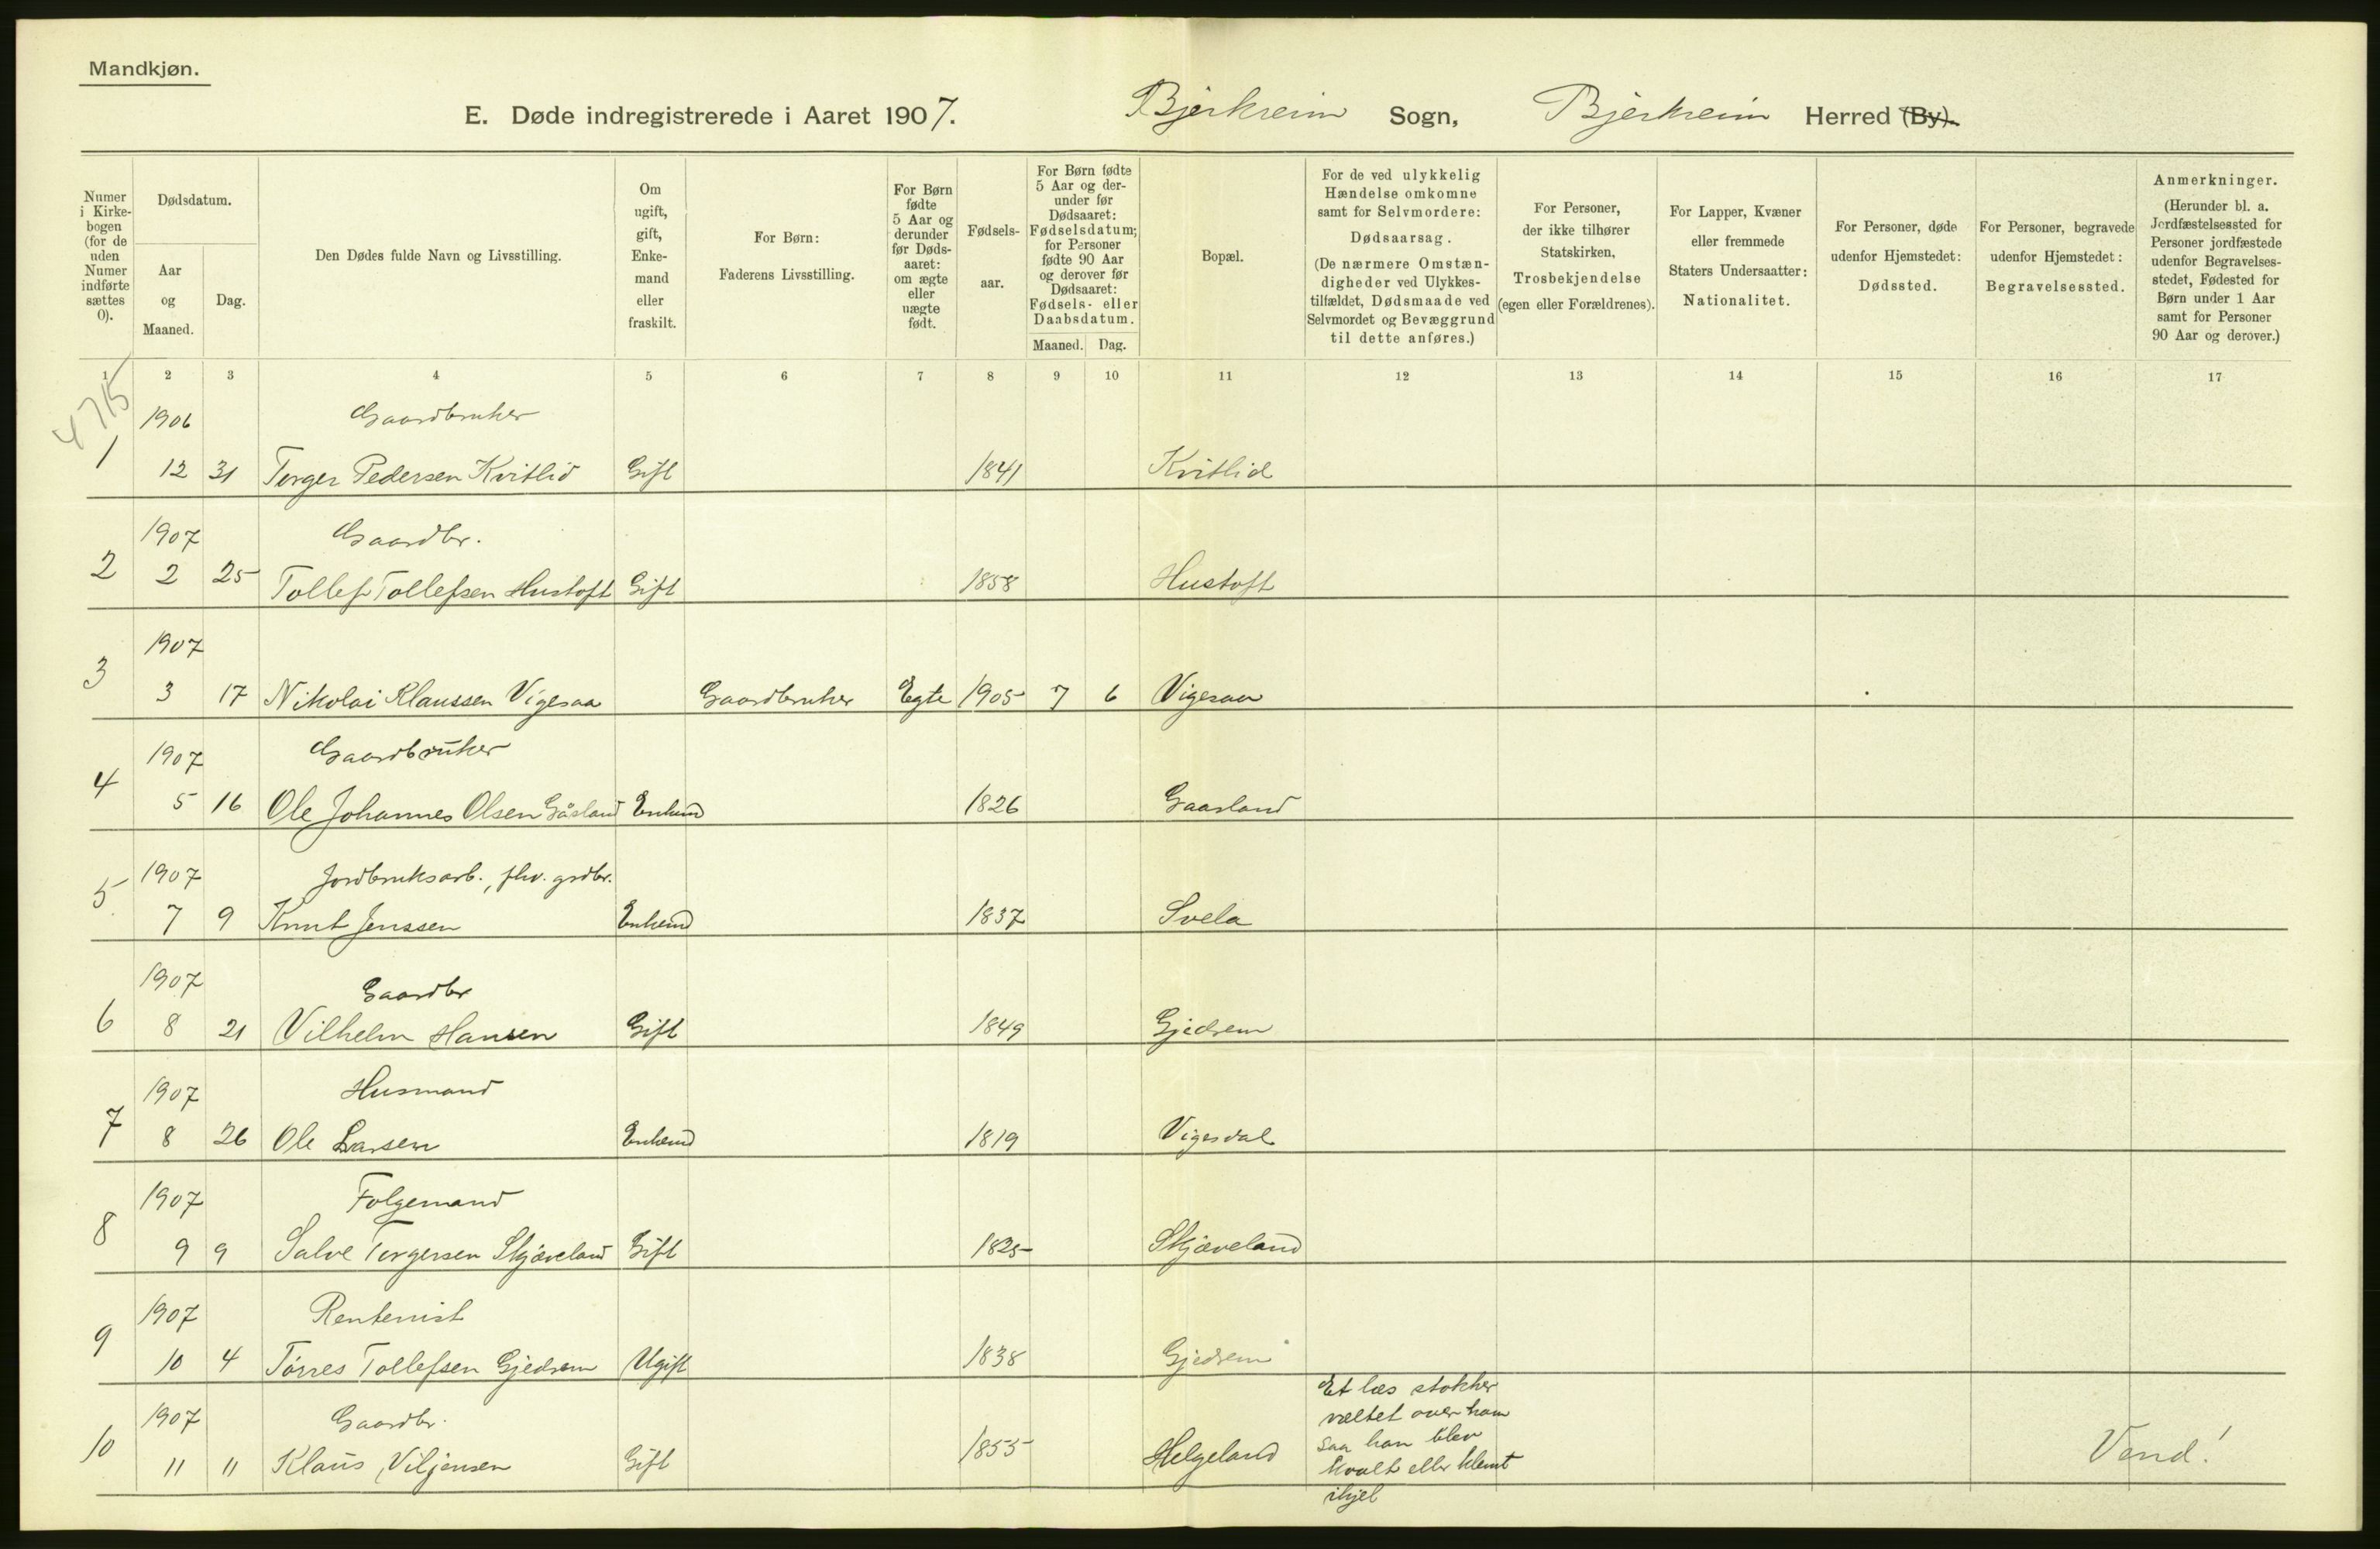 Mandkjøn.
E. Døde indregistrerede i Aaret 1907. Bjerkreim Sogn, Bjerkreim Herred (By).
Numer i Kirke-bogen (for de uden Numer indførte sættes 0).
Dødsdatum.
Aar og Maaned.
Dag.
Den Dødes fulde Navn og Livsstilling.
Om ugift, gift, Enke-mand eller fraskilt.
For Børn: Faderens Livsstilling.
For Børn fødte 5 Aar og derunder før Døds-aaret: om ægte eller uægte født.
Fødsels-aar.
For Børn fødte 5 Aar og der-under før Dødsaaret: Fødselsdatum; for Personer fødte 90 Aar og derover før Dødsaaret: Fødsels- eller Daabsdatum.
Maaned. Dag.
Bopæl.
For de ved ulykkelig Hændelse omkomne samt for Selvmordere: Dødsaarsag. (De nærmere Omstæn-digheder ved Ulykkes-tilfældet, Dødsmaade ved Selvmordet og Bevæggrund til dette anføres.)
For Personer, der ikke tilhører Statskirken, Trosbekjendelse (egen eller Forældrenes).
For Lapper, Kvæner eller fremmede Staters Undersaatter: Nationalitet.
For Personer, døde udenfor Hjemstedet: Dødssted.
For Personer, begravede udenfor Hjemstedet: Begravelsessted.
Anmerkninger. (Herunder bl. a. Jordfæstelsessted for Personer jordfæstede udenfor Begravelses-stedet, Fødested for Børn under 1 Aar samt for Personer 90 Aar og derover.)
1 2 3 4 5 6 7 8 9 10 11 12 13 14 15 16 17
4715
1906 Gaardbruker
1 12 31 Torger Pedersen Kvitlid Gift 1841 Kvitlid
1907 Gaardbr.
2 2 25 Tollef Tollefsen Hustoft Gift 1858 Hustoft
1907
3 3 17 Nikolai Klaussen Vigesaa Gaardbruker Egte 1905 7 6 Vigesaa
1907 Gaardbruker
4 5 16 Ole Johannes Olsen Gåsland Enkemd 1826 Gaasland
1907 Jordbruksarb., fhv. grdbr.
5 7 9 Knut Jenssen Enkemd 1837 Svela
1907 Gaardbr
6 8 21 Vilhelm Hansen Gift 1849 Gjedrem
1907 Husmand
7 8 26 Ole Larsen Enkemd 1819 Vigesdal
1907 Folgemand
8 9 9 Salve Torgersen Skjæveland Gift 1825 Skjæveland
1907 Rentenist
9 10 4 Tørres Tollefsen Gjedrem Ugift 1838 Gjedrem
1907 Gaardbr.
10 11 11 Klaus Viljensen Gift 1855 Helgeland
Et læs stokker
væltet over ham
saa han blev
kvalt eller klemt
ihjel
Vend!